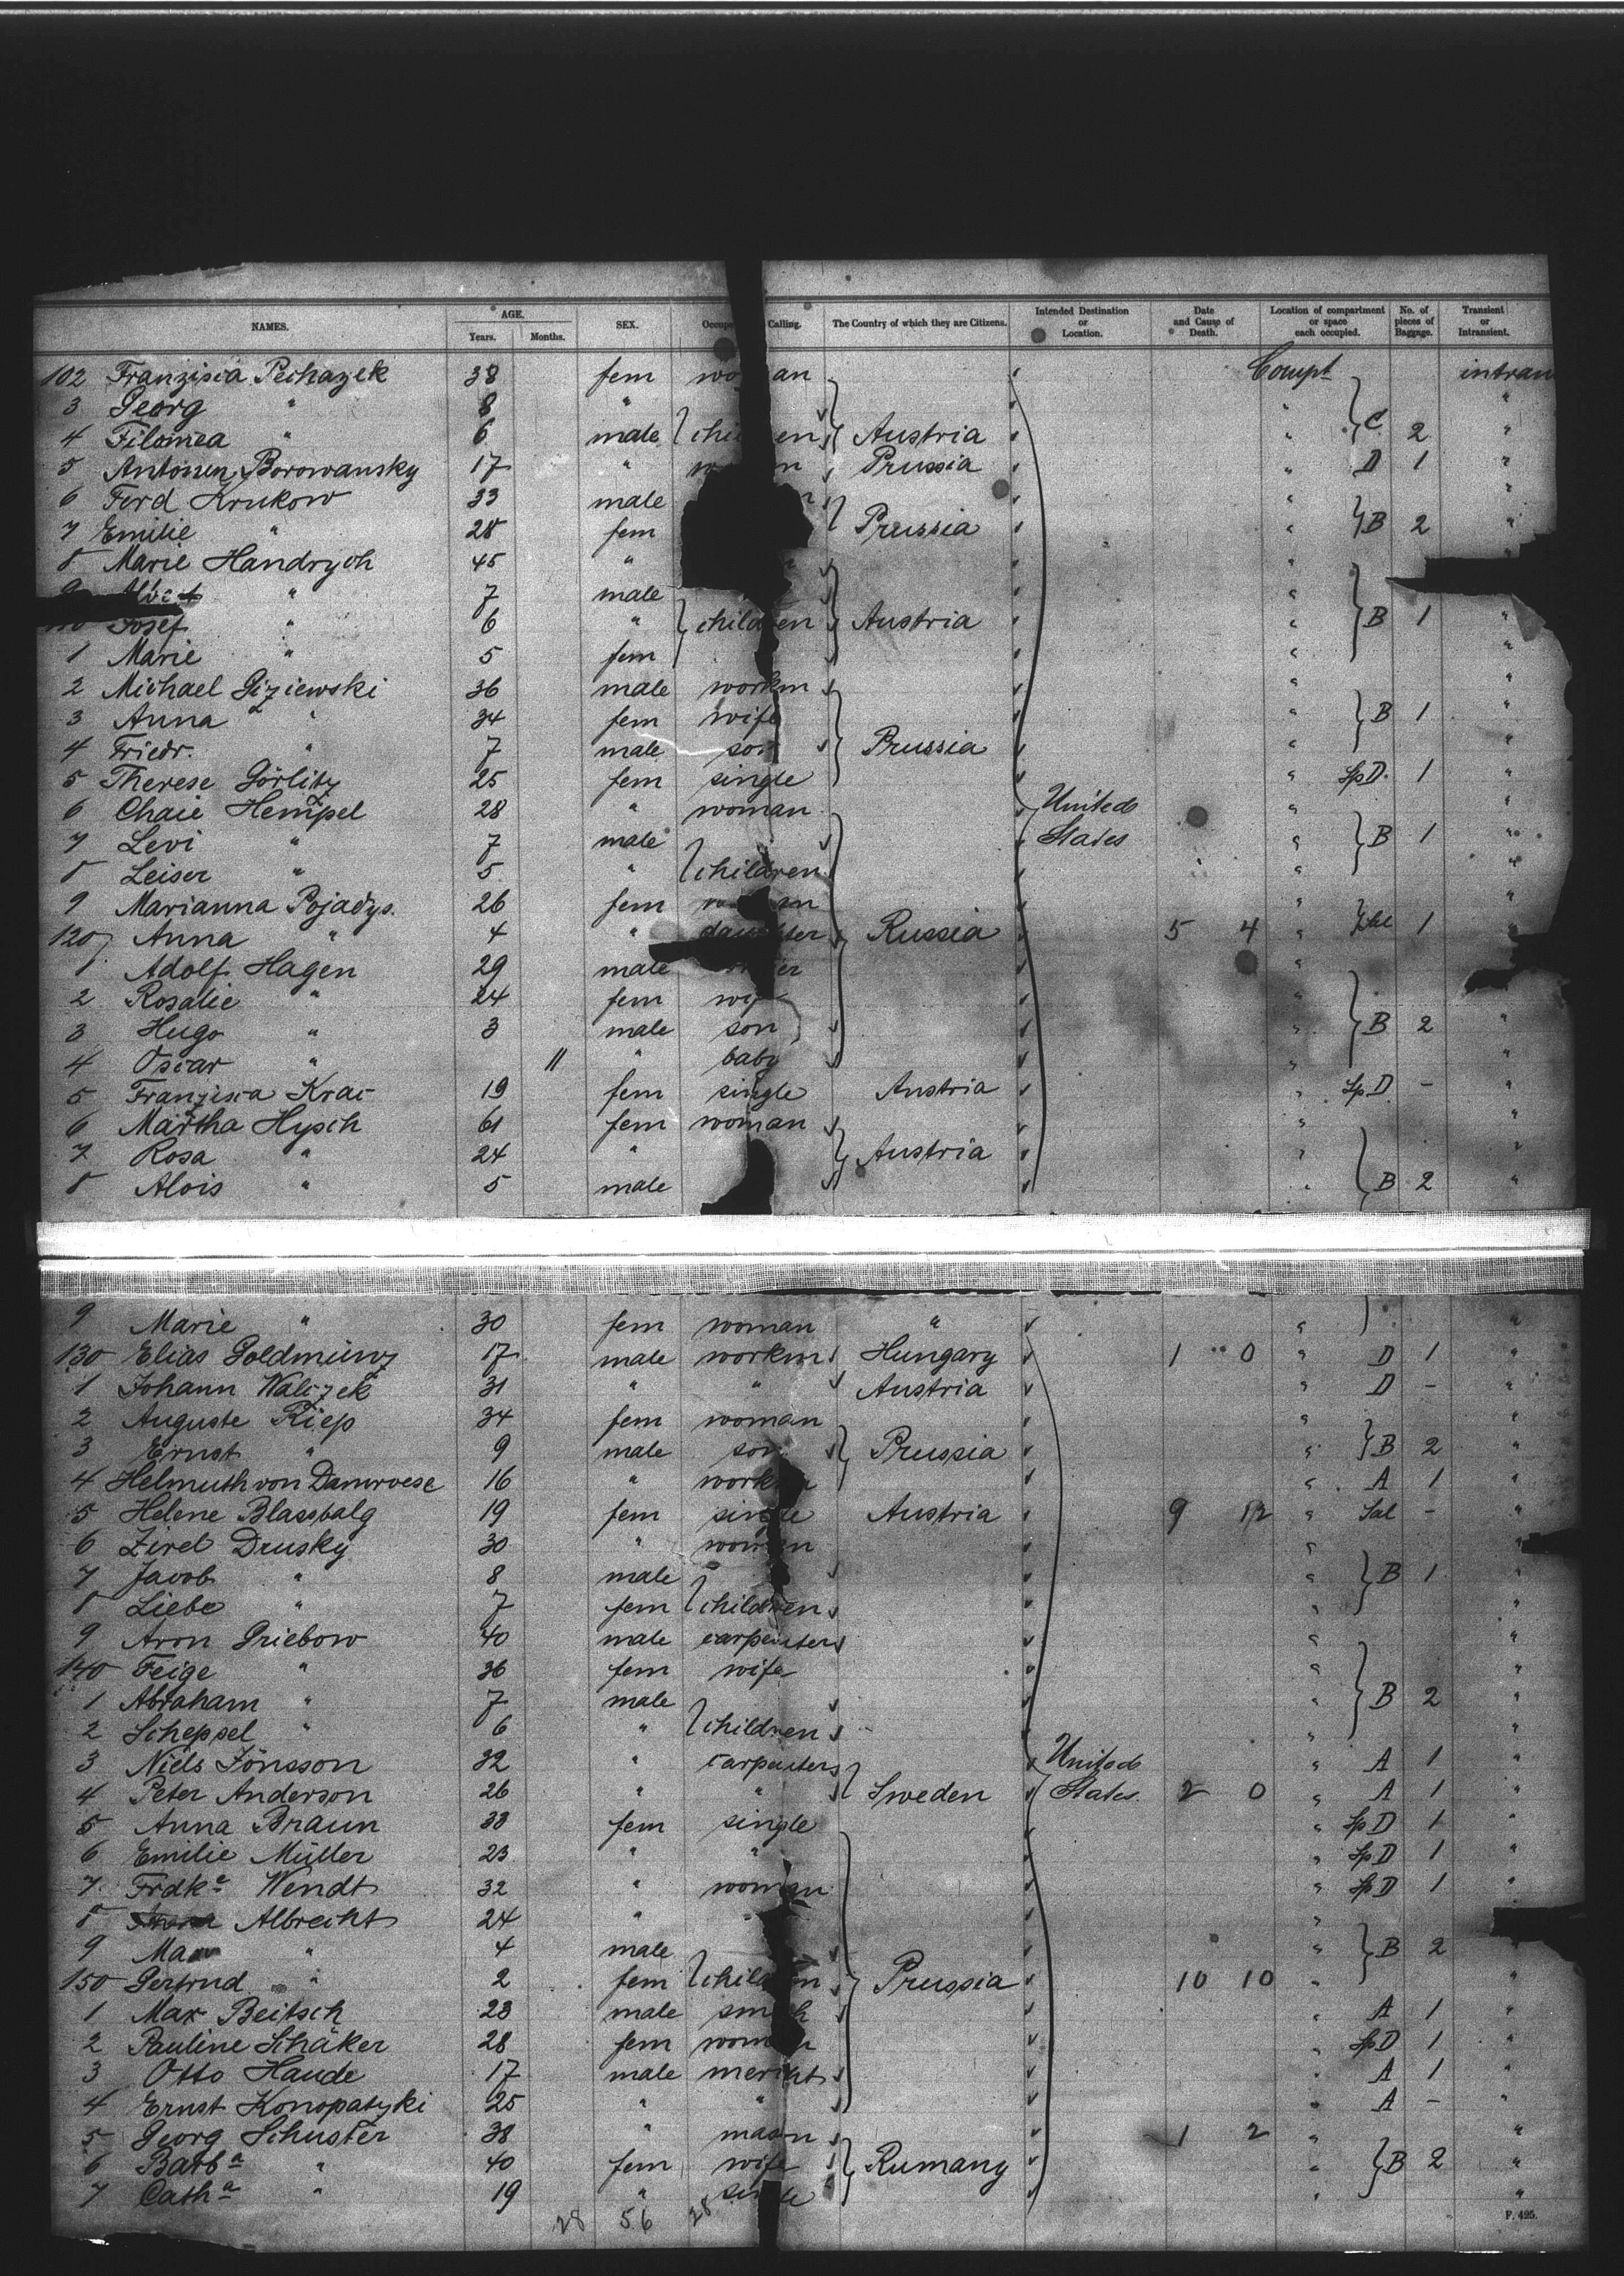 NAMES. AGE. Years. Months. SEX. Calling. The Country of which they are Citizens. Intended Destination or Location. Date and Cause of Death. Location of compartment or space each occupied. No. of pieces of Baggage. Transient or Intransient.
102 Franzisca Pechazek 38 fem woman Compt
3 Georg " 8 " " "
4 Filomea " 6 male children Austria " C 2 "
5 Borowansky 17 " Prussia " D 1 "
6 Ferd Krukow 33 male " "
7 Emilie " 28 fem Prussia " B 2 "
8 Marie Handrych 45 " "
" 7 male "
Josef " 6 " children Austria " B 1 "
1 Marie " 5 fem " "
2 Michael Giziewski 36 male workm " "
3 Anna " 34 fem wife " B 1 "
4 Friedr. " 7 male son Prussia " "
5 Therese Görlitz 25 fem single " Sp D. 1 "
6 Chaie Hempel 28 " woman United " "
7 Levi " 7 male States " B 1 "
8 Leiser " 5 " children " "
9 Marianna Pojadys. 26 fem " "
120 Anna " 4 " daughter Russia 5 4 " Sal 1 "
1 Adolf Hagen 29 male "
2 Rosalie " 24 fem wife " "
3 Hugo " 3 male son " B 2 "
4 Oscar " 11 " baby " "
5 Franzisca 19 fem single Austria " Sp D. - "
6 Martha Hysch 61 fem woman " "
7 Rosa " 24 " Austria " "
8 Alois " 5 male " B 2 "
9 Marie " 30 fem woman " " "
130 Elias Goldmünz 17 male workm Hungary 1 0 " D 1 "
1 Johann Walizek 31 " " Austria " D - "
2 Auguste Riep 34 fem woman " "
3 Ernst " 9 male son Prussia " B 2 "
4 Helmuth von Damroese 16 " workm " A 1 "
5 Helene Blassbalg 19 fem single Austria 9 12 " Sal - "
6 Zirel Drusky 30 " woman " "
7 Jacob " 8 male " B 1 "
8 Liebe " 7 fem children " "
9 Aron Griebow 40 male carpenter " "
140 Feige " 36 fem wife " "
1 Abraham " 7 male " B 2 "
2 Schepsel " 6 " children " "
3 Niels Jönsson 32 " carpenter United " A 1 "
4 Peter Anderson 26 " " Sweden States 2 0 " A 1 "
5 Anna Braun 33 fem single " Sp D 1 "
6 Emilie Müller 23 " " " Sp D 1 "
7 Frdka Wendt 32 " woman " Sp D 1 "
8 Albrecht 24 " " "
9 " 4 male " B 2 "
150 Gertrud " 2 fem children Prussia 10 10 " "
1 Max Beitsch 23 male smith " A 1 "
2 Pauline Schäker 28 fem woman " Sp D 1 "
3 Otto Haude 17 male mercht " A 1 "
4 Ernst Konopatzki 25 " " " A - "
5 Georg Schuster 38 " mason 1 2 " "
6 Barba " 40 fem wife Rumany " B 2 "
7 Catha " 19 " single " "
28 56 28
F. 425.